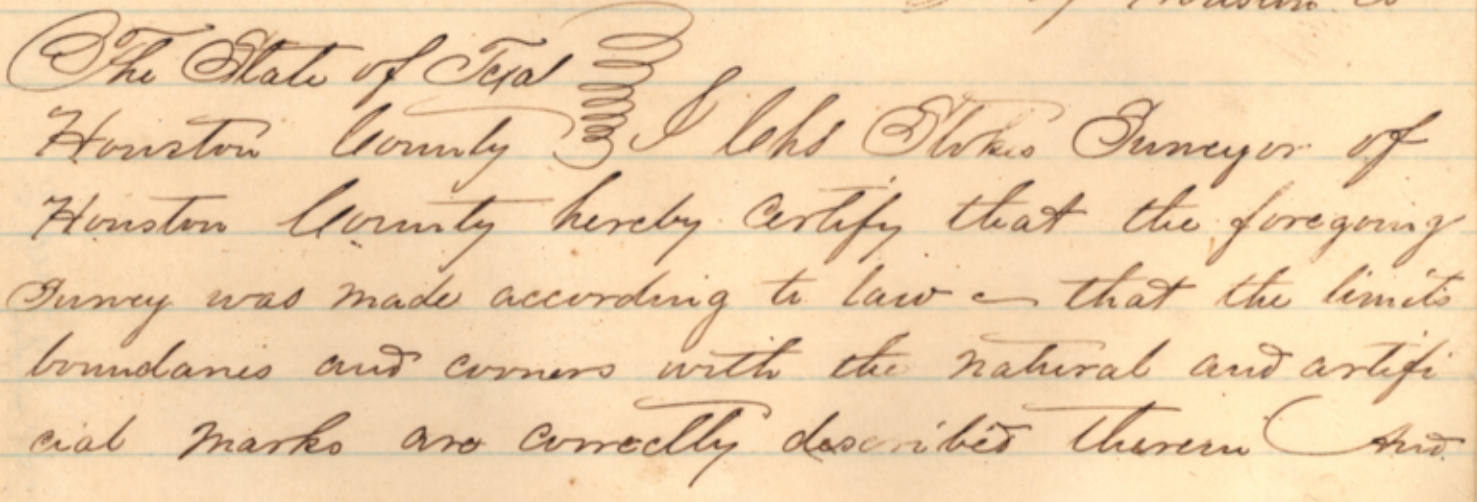 Houston Co
The State of Texas
Houston County I Chs Stokes Surveyor of
Houston County hereby certify that the foregoing
Survey was made according to law & that the limits
boundaries and corners with the natural and artifi
cial marks are correctly described therein And